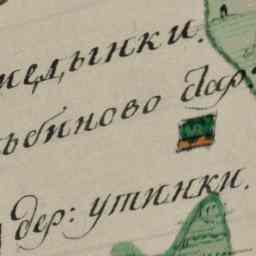 медынки.
ѣбиново дер:
дер: утинки.